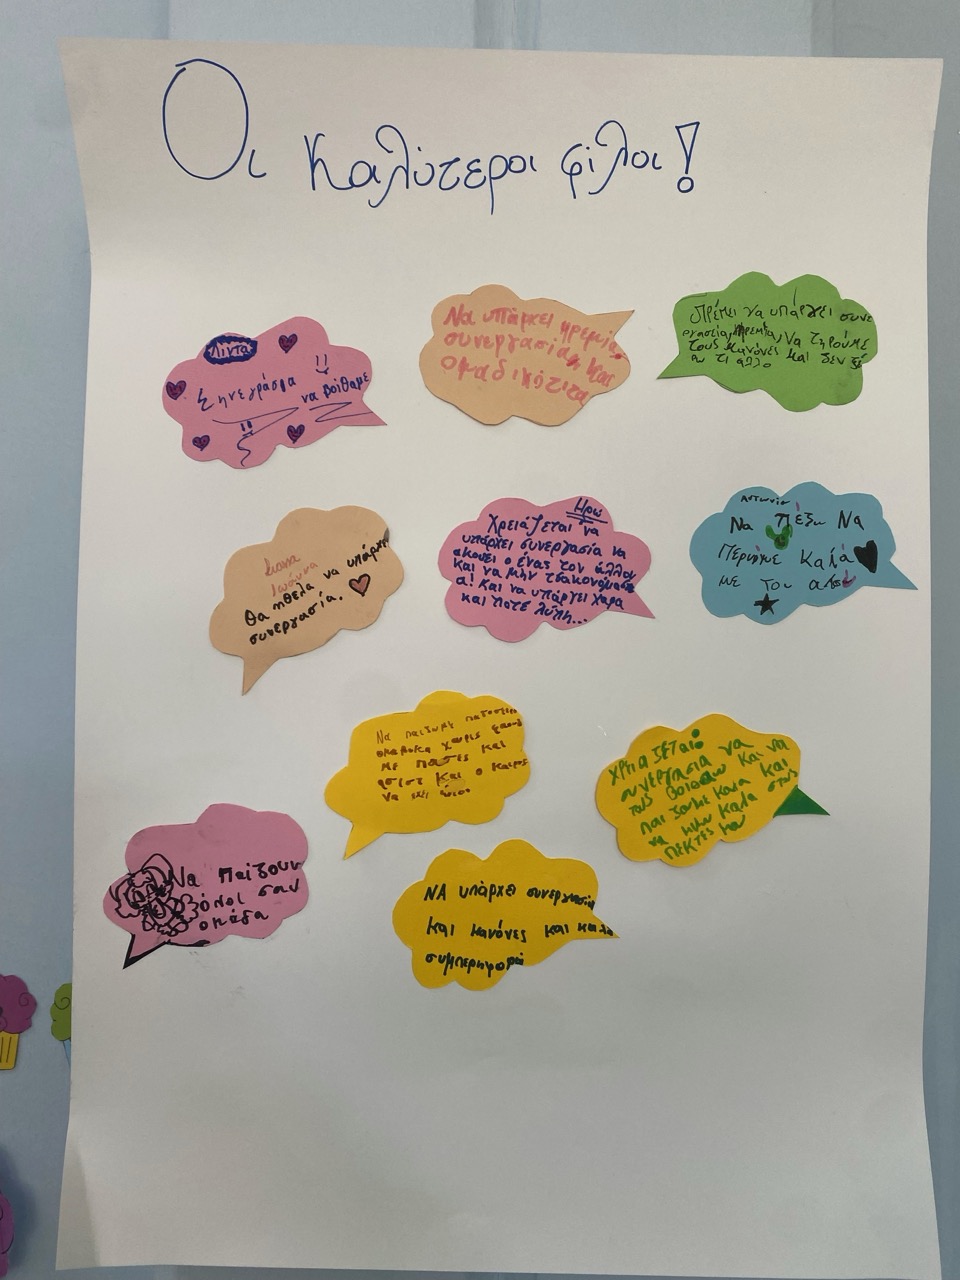 Οι καλύτεροι φίλοι!
Λίντα
Σηνεγράσια
να βοίθαμε
!!
Να υπάρχει ηρεμία,
συνεργασία, και
ομαδικότιτα
Πρέπει να υπάρχει συνε
ργασία, ηρεμία, Να τηρούμε
τους κανόνες και δεν ξέ
ω τι άλλο
Ιωάννα
Θα ηθελα να υπάρχει
συνεργασία.
Ηρώ
Χρειάζεται να
υπάρχει συνεργασία να
ακουει ο ένας τον άλλον
και να μην τσακονόμαστε
α! Και να υπάρχει χαρά
και ποτέ λύπη...
Αντωνία
Να Πέξω Να
Περνάμε καλά
με τον
Να παιζουμε
ομαδικα χωρις
με πασες και
και ο καιρος
να
χρηαζεται
συνεργασια να
τους βοιοαω και να
παιζουμε καλα και
να καλα στους
πεκτες μου
Να Παίζουν
όλοι σαν
ομάδα
ΝΑ υπάρχει συνεργασία
και κανόνες και καλή
συμπερηφορά